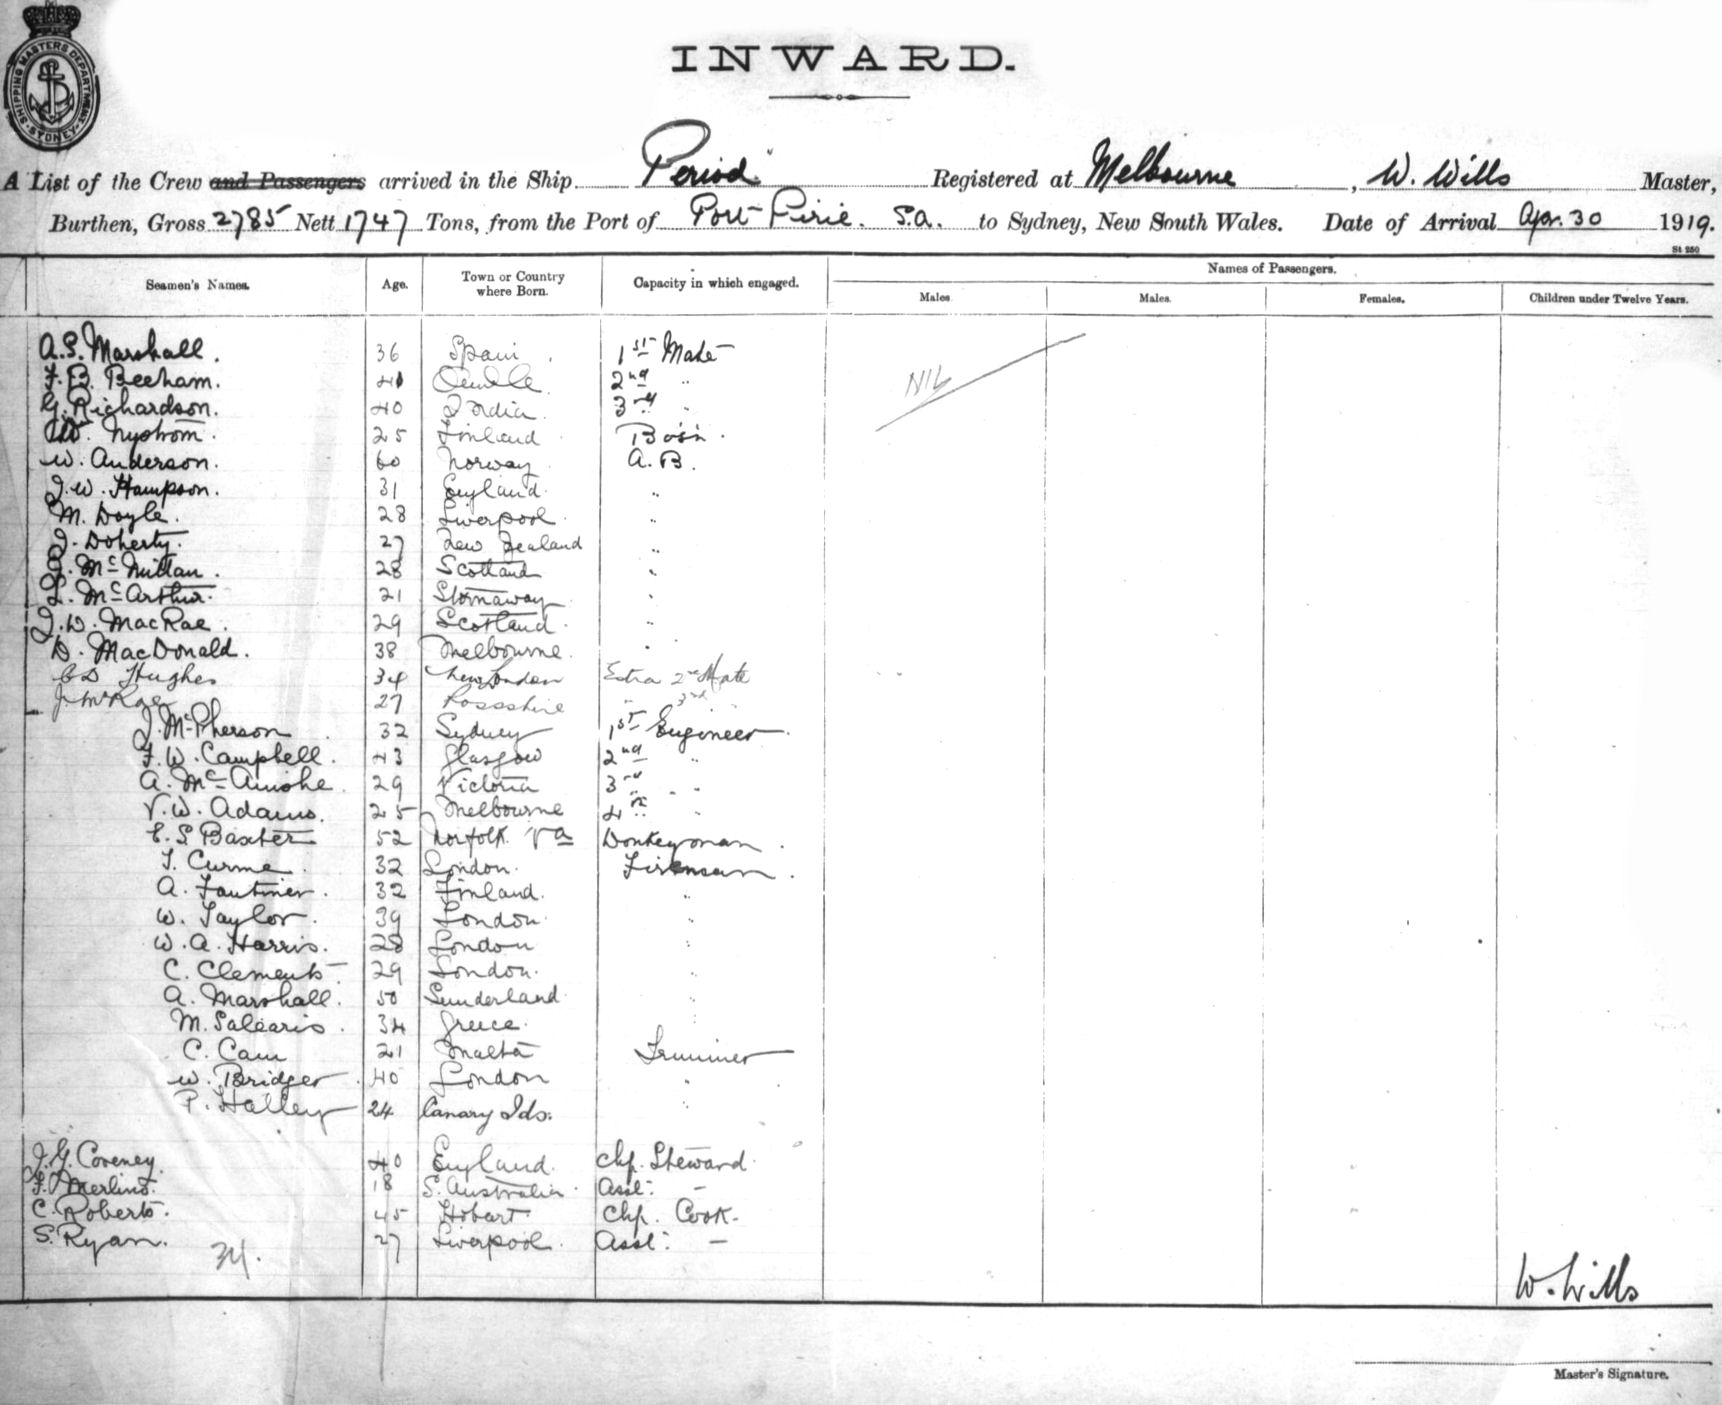 SHIPPING MASTERS DEPARTMENT SYDNEY
INWARD.
A List of the Crew and Passengers arrived in the Ship Period. Registered at Melbourne, W. Wills Master,
Burthen, Gross 2785 Nett 1747 Tons, from the Port of Port Pirie. S.A. to Sydney, New South Wales. Date of Arrival Apr. 30 1919.
St 250
Seamen's Names. Age. Town or Country where Born. Capacity in which engaged. Names of Passengers.
Males Males. Females. Children under Twelve Years.
A.S. Marshall. 36 Spain 1st Mate
F.B. Beeham. 41 2nd "
G. Richardson. 40 India 3rd " Nil
Nystrom. 25 Finland Bos'n.
W. Anderson. 60 Norway A.B.
J.W. Hampson. 31 England. "
M. Doyle. 28 Liverpool "
J. Doherty. 27 New Zealand "
28 Scotland "
L. McArthur. 21 Stornaway "
J.D. MacRae. 29 Scotland. "
D. MacDonald. 38 Melbourne. "
Hughes 34 New London Extra 2nd Mate
J. McRae 27 Rossshire " 3rd
J. McPherson 32 Sydney 1st Engineer
F.W. Campbell. 43 Glasgow 2nd "
A. 29 Victoria 3rd " "
V.W. Adams. 25 Melbourne 4th "
E.S Baxter 52 Norfolk Va Donkeyman.
T. Curme. 32 London. Fireman.
A. 32 Finland. "
W. Taylor. 39 London "
W.A. Harris. 28 London "
C. Clements 29 London. "
A. Marshall. 50 Sunderland "
M. Salearis. 34 Greece. "
C. Cam 21 Malta Trimmer
W. Bridger 40 London "
P. Halley 24 Canary Ids. "
J.G. Coveney. 40 England. Chf. Steward.
F. Merlino. 18 S. Australia. Asst. -
C. Roberts. 45 Hobart. Chf. Cook-
S. Ryan. 27 Liverpool. Asst. -
34.
W. Wills
Master's Signature.